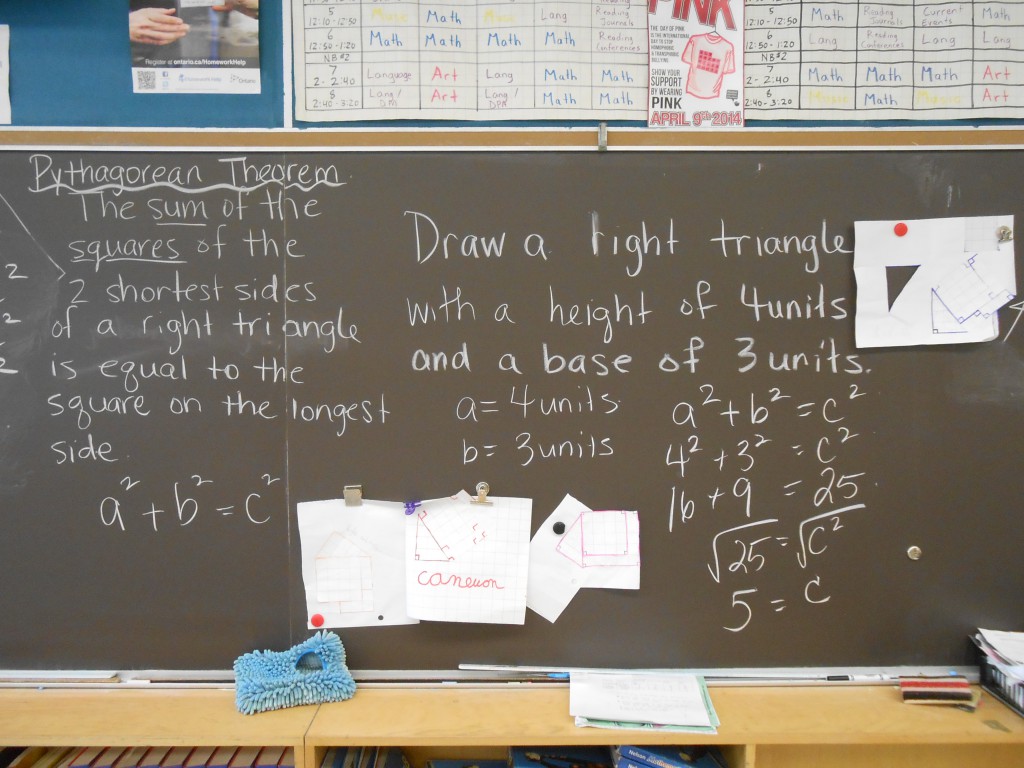 Register at ontario.ca/HomeworkHelp
Ontario
5
12:10-12:50
Math
Lang
Reading
Journals
6
12:50-1:20
Math
Math
Math
Math
Reading
Conferences
NB#2
7
2-2:40
Language
Art
Lang
Math
Math
8
2:40-3:20
Lang/
DPA
Art
Lang/
DPA
Math
Math
PINK
THE DAY OF PINK
IS THE INTERNATIONAL
DAY TO STOP
HOMOPHOBIC
& TRANSPHOBIC
BULLYING
SHOW YOUR
SUPPORT
BY WEARING
PINK
APRIL 9th 2014
5
12:10-12:50
Math
Reading
Journals
Current
Events
Math
6
12:50-1:20
Lang
Reading
Conferences
Lang
Lang
NB#2
7
2-2:40
Math
Math
Math
Art
8
2:40-3:20
Math
Art
Pythagorean Theorem
The sum of the
squares of the
2 shortest sides
of a right triangle
is equal to the
square on the longest
side.
a² + b² = c²
2
2
2
Draw a right triangle
with a height of 4units
and a base of 3 units.
a = 4 units
b = 3 units
a² + b² = c²
4² + 3² = c²
16 + 9 = 25
√25 = √c²
5 = c